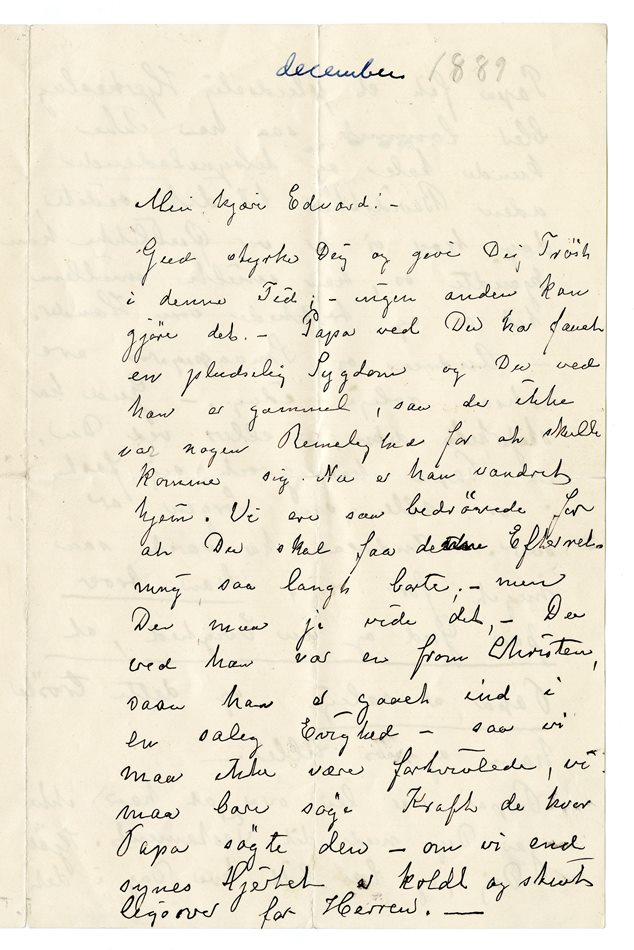 december 1889
Min kjære Edvard! -
Gud styrke Dig og give Dig Tröst
i denne Tid, - ingen anden kan
gjöre det. - Papa ved Du har faaet
en pludselig Sygdom og Du ved
han er gammel, saa der ikke
var nogen Rimelighed for at skulle
komme sig. Nu er han vandret
hjem. Vi ere saa bedrövede for
at Du skal faa denne Efterret-
ning saa langt borte, - men
Du maa jo vide det, - Du
ved han var en from Christen,
saa han er gaaet ind i
en salig Evighed - saa vi
maa ikke være fortvivlede, vi
maa bare söge Kraft der hvor
Papa sögte den - om vi end
synes Hjertet er koldt og
ligeover for Herren. -